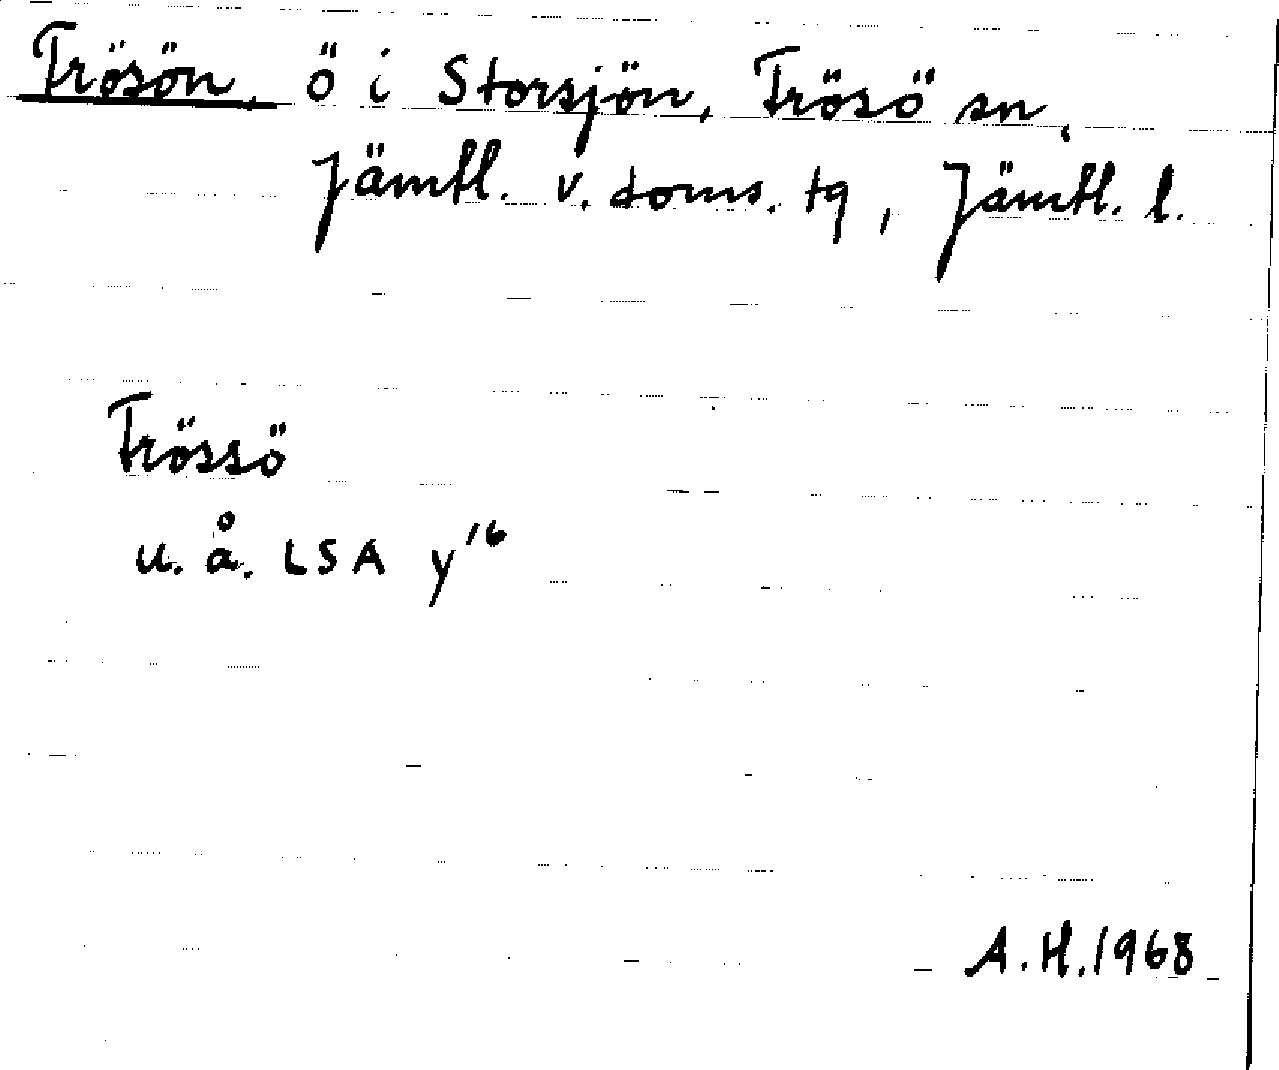 Frösön, ö i Storsjön, Frösö sn,
Jämtl. v. doms. tg, Jämtl. l.
Frössö
u. å. LSA y¹⁶
A.H. 1968